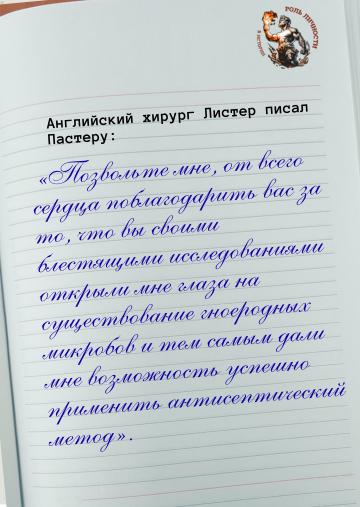 РОЛЬ ЛИЧНОСТИ
Английский хирург Листер писал
Пастеру:
«Позвольте мне, от всего
сердца поблагодарить вас за
то, что вы своими
блестящими исследованиями
открыли мне глаза на
существование гноеродных
микробов и тем самым дали
мне возможность успешно
применить антисептический
метод».